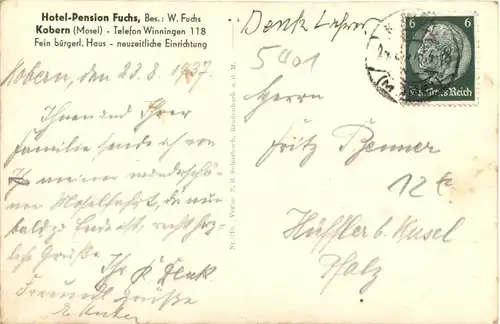 Hotel-Pension Fuchs, Bes.: W. Fuchs
Kobern (Mosel) - Telefon Winningen 118
Fein bürgerl. Haus - neuzeitliche Einrichtung
Kobern, den 23.8.1937.
Ihnen und Ihrer
Familie sende ich von
meiner wunderschö-
nen Moselfahrt, die nun
bald zu Ende ist, recht herz-
liche Grüße
Ihr P. Denk
Freundl. Grüße
Denk, Lehrer
5401
Herrn
Fritz Benner
12€
Hüffler b. Kusel
Pfalz
6 6
Deutsches Reich